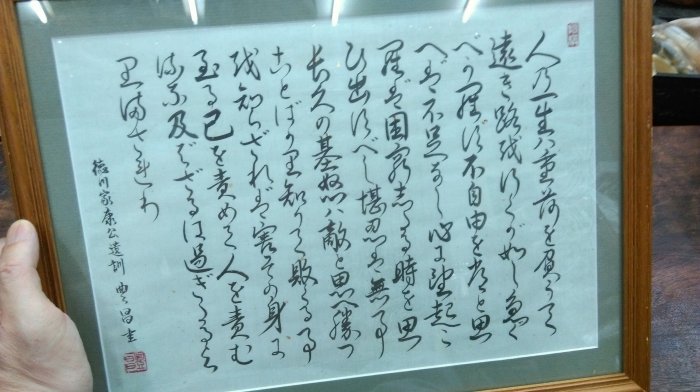 人乃一生ハ重荷を負うて
遠き路を行くが如し急ぐ
べからず不自由を常と思
へば不足なし心に望起こ
らば困窮したる時を思
ひ出すべし堪忍は無事
長久の基怒ハ敵と思へ勝つ
ことばかり知りて敗るる事
を知らざれば害その身に
至る己を責めて人を責む
るな及ばざるは過ぎたるよ
りまされり
徳川家康公遺訓 昌書